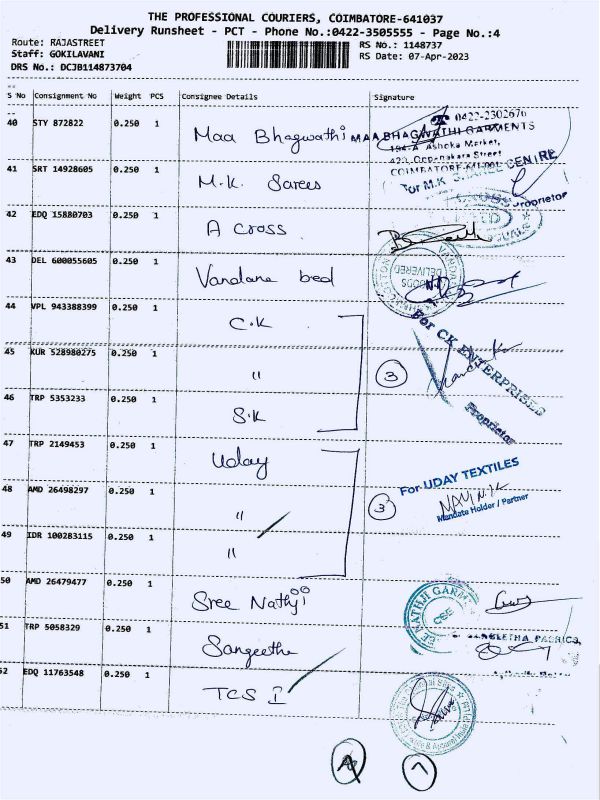 THE PROFESSIONAL COURIERS, COIMBATORE-641037
Delivery Runsheet - PCT - Phone No.:0422-3505555 - Page No.:4
Route: RAJASTREET
RS No.: 1148737
Staff: GOKILAVANI
RS Date: 07-Apr-2023
DRS No.: DCJB114873704
S No Consignment No Weight PCS Consignee Details Signature
☎ 0422-2302676
40 STY 872822 0.250 1 Maa Bhagwathi MAA BHAGWATHI GARMENTS
194-A Ashoka Market,
420, Oppanakara Street
COIMBATORE-641 001
41 SRT 14928605 0.250 1 M.K. Sarees For M.K. SAREE CENTRE
Proprietor
42 EDQ 15880703 0.250 1 A Cross
43 DEL 600055605 0.250 1 Vandana bed
GOODS
DELIVERED
44 VPL 943388399 0.250 1 C.K
For CK ENTERPRISES
45 KUR 528980275 0.250 1 " 3
46 TRP 5353233 0.250 1 S.K
Proprietor
47 TRP 2149453 0.250 1 Uday
For UDAY TEXTILES
48 AMD 26498297 0.250 1 " 3
Mandate Holder / Partner
49 IDR 100283115 0.250 1 "
50 AMD 26479477 0.250 1 Sree Nathji
CBE
51 TRP 5058329 0.250 1 Sangeetha
52 EDQ 11763548 0.250 1 TCS I